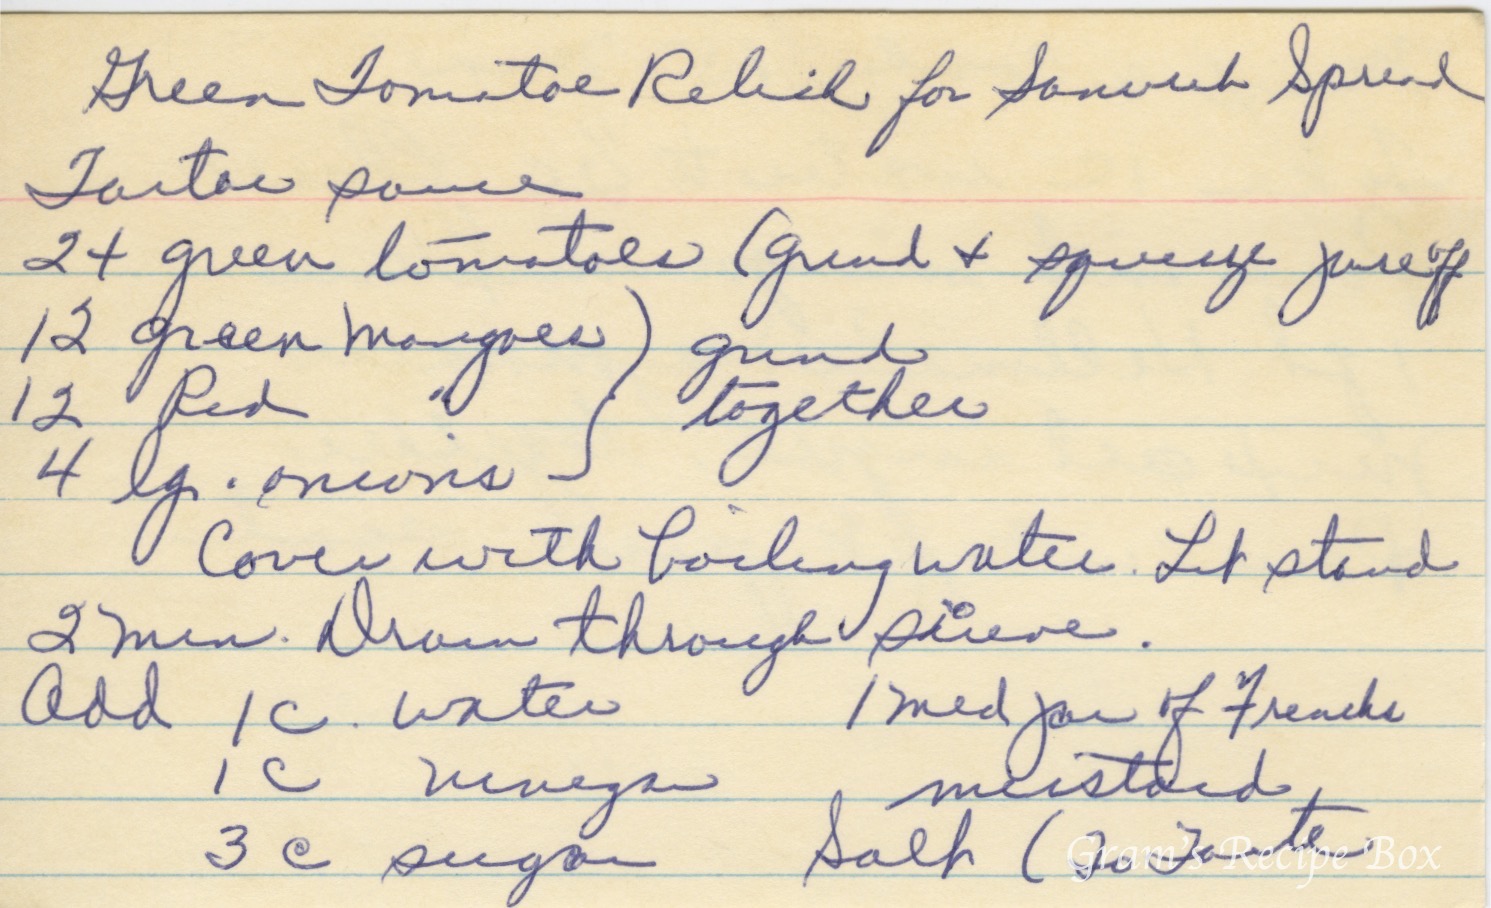 Green Tomatoe Relish for Sanwich Spread
Tartar sauce
24 green tomatoes (Grind + squeeze juice off
12 green mangoes ) grind
12 Red " together
4 lg. onions
Cover with boiling water. Let stand
2 min. Drain through sieve.
Add 1 c. water 1 med jar of Frenchs
1 c vinegar mustard
3 c sugar Salt (To Taste
Gram's Recipe Box